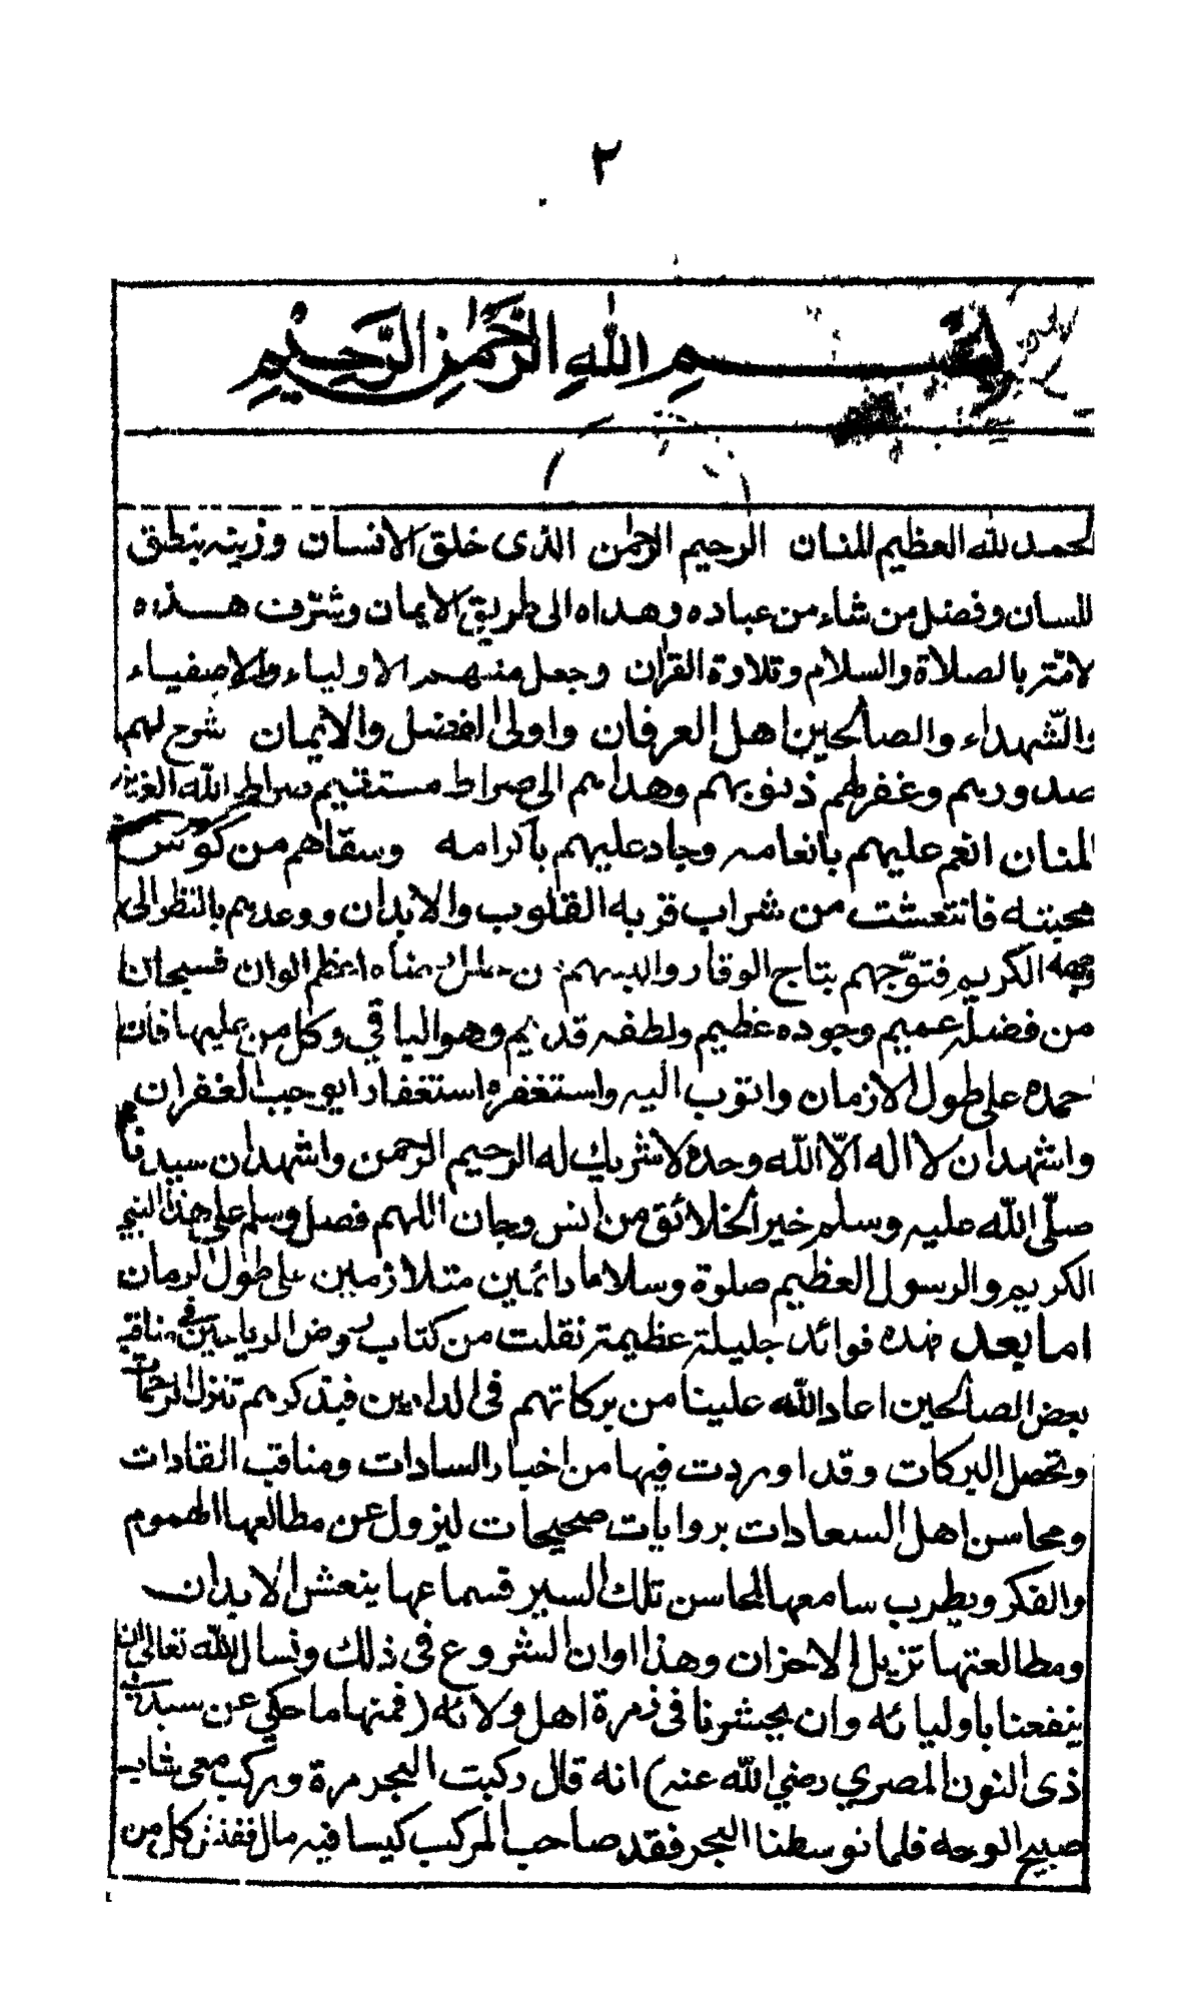 ٢
بسم الله الرحمن الرحيم
لحمد لله العظيم للنان الرحيم الرحمن الذى خلق الانسان وزينه بنطق
للسان وفضل من شاء من عباده وهداه الى طريق الايمان وشرف هذه
لامتر بالصلاة والسلام وتلاوة القرآن وجعل منهم الاولياء والاصفياء
والشهداء والصالحين اهل العرفان واولى الفضل والايمان شرح لهم
صدورهم وغفر لهم ذنوبهم وهداهم الى صراط مستقيم صراط الله العزيز
المنان انعم عليهم بانعامه وجاد عليهم باكرامه وسقاهم من كؤس
محبته فانتعشت من شراب قربه القلوب والابدان ووعدهم بالنظر الى
وجهه الكريم فتوّجهم بتاج الوقار والبسهم من اعظم الوان فسبحان
من فضله عميم وجوده عظيم ولطفه قديم وهو الباقي وكل من عليها فان
حمده على طول الازمان واتوب اليه واستغفره استغفارا يوجب الغفران
واشهد ان لا اله الّا الله وحده لا شريك له الرحيم الرحمن واشهد ان سيدنا
صلّى الله عليه وسلم خير الخلائق من انس وجان اللهم فصل وسلم على هذا النبي
الكريم والرسول العظيم صلوة وسلاما دائمين متلازمين على طول الزمان
اما بعد فهذه فوائد جليلة عظيمة نقلت من كتاب روض الرياحين فى مناقب
بعض الصالحين اعاد الله علينا من بركاتهم فى الدارين فبذكرهم تنزل الرحمات
وتحصل البركات وقد اوردت فيها من اخبار السادات ومناقب القادات
ومحاسن اهل السعادات بروايات صحيحات ليزول عن مطالعها الهموم
والفكر ويطرب سامعها لمحاسن تلك السير قسماعها ينعش الابدان
ومطالعتها تزيل الاحزان وهذا اوان الشروع فى ذلك ونسال الله تعالى ان
ينفعنا باوليائه وان يحشرنا فى زمرة اهل ولائه (فمنها ما حكي عن سيدى
ذى النون المصري رضي الله عنه) انه قال ركبت البحر مرة وركب معى شاب
صبيح الوجه فلما توسطنا البحر فقد صاحب المركب كيسا فيه مال ففتش كل من